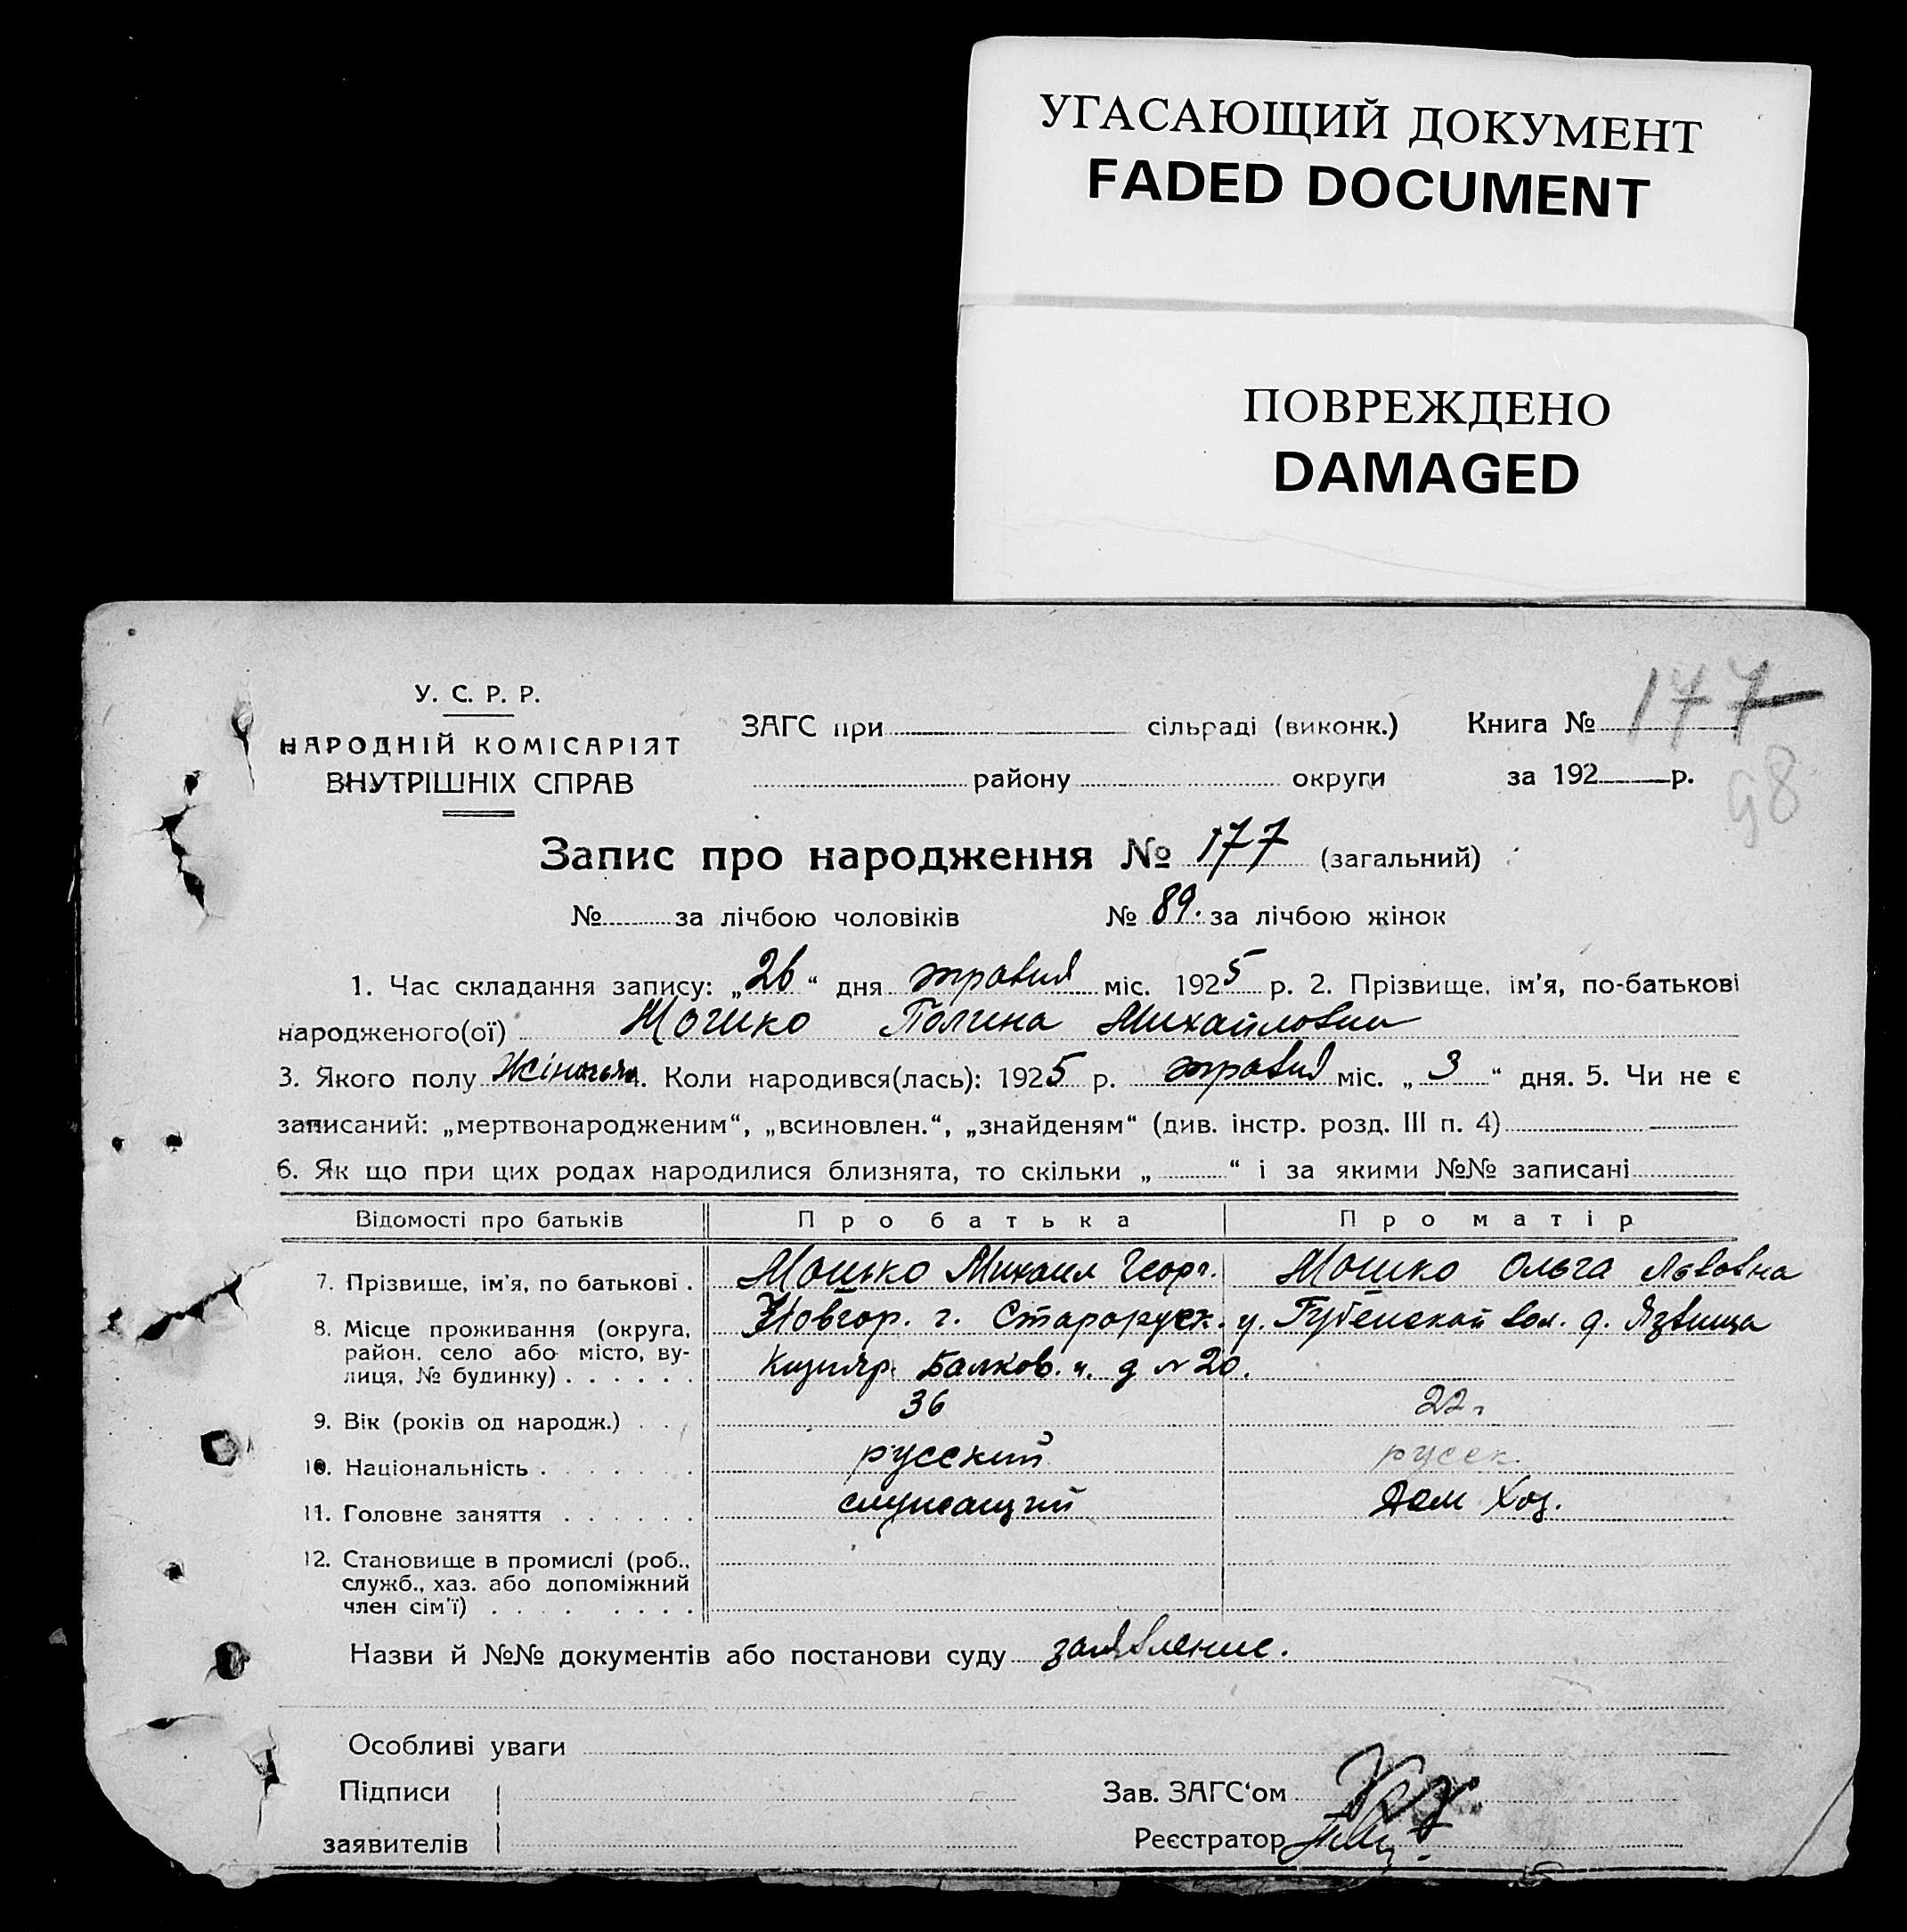 УГАСАЮЩИЙ ДОКУМЕНТ
FADED DOCUMENT
ПОВРЕЖДЕНО
DAMAGED
У. С. Р. Р.
НАРОДНІЙ КОМІСАРІЯТ
ВНУТРІШНІХ СПРАВ
ЗАГС при сільраді (виконк.) Книга № 177
району округи за 192 р.
98
Запис про народження № 177 (загальний)
№ за лічбою чоловіків № 89. за лічбою жінок
1. Час складання запису: „26“ дня травня міс. 1925 р. 2. Прізвище, ім'я, по-батькові
народженого(ої) Мошко Полина Михайловна
3. Якого полу Жіночья. Коли народився(лась): 1925 р. травня міс. „3“ дня. 5. Чи не є
записаний: „мертвонародженим“, „всиновлен.“, „знайденям“ (див. інстр. розд. III п. 4)
6. Як що при цих родах народилися близнята, то скільки „ “ і за якими №№ записані
Відомості про батьків Про батька Про матір
7. Прізвище, ім'я, по батькові . Мошко Михаил Георг. Мошко Ольга Львовна
8. Місце проживання (округа, Новгор. г. Старорусск. у. Губенской вол. д. Язвища
район, село або місто, ву-
лиця, № будинку) . . . . . . Балков. ч. д № 20.
9. Вік (років од народж.) . . . 36 22 г
10. Національність . . . . . . . русский русск.
11. Головне заняття . . . . . . служащий Дом Хоз.
12. Становище в промислі (роб.,
служб., хаз. або допоміжний
член сім'ї) . . . . . . . .
Назви й №№ документів або постанови суду заявление.
Особливі уваги
Підписи Зав. ЗАГС'ом
заявителів Реєстратор